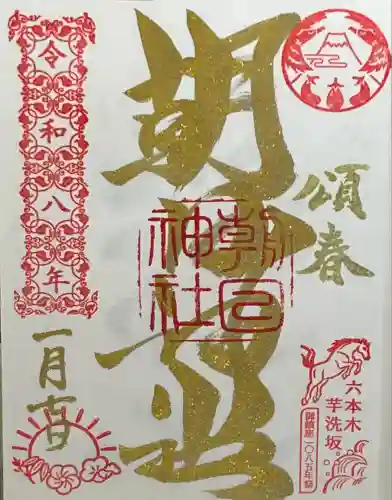 頌春
六本木
芋洗坂
御鎮座一〇八五年祭
朝日神社
朝日
神社
令和八年
一月吉日